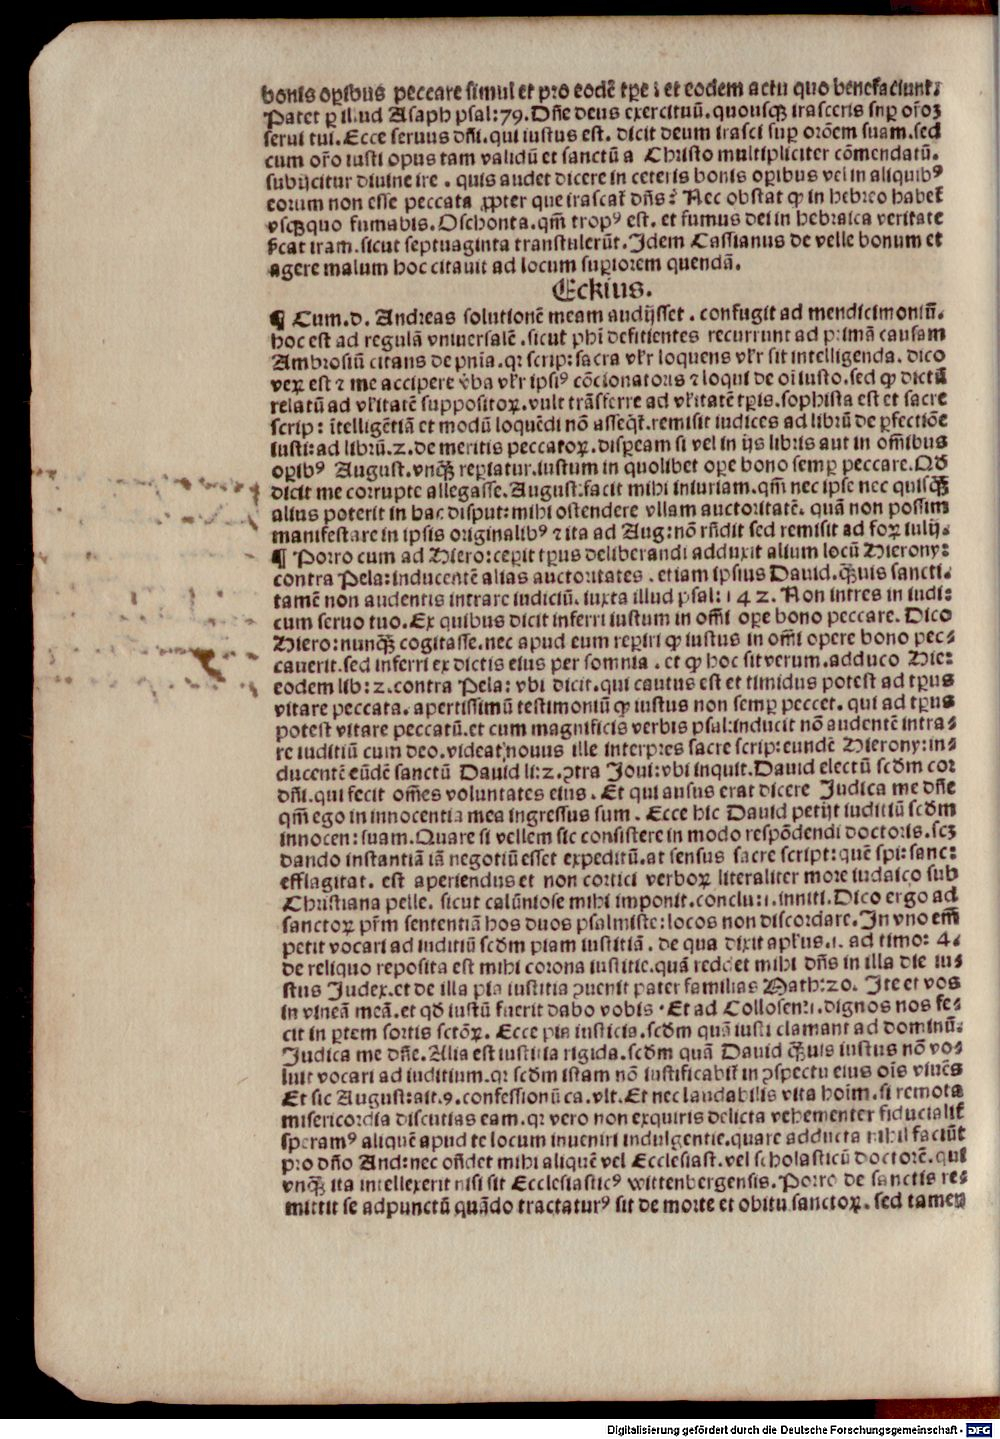 bonis op̄ibus peccare simul et pro eodē tp̄e i et eodem actu quo benefaciunt.
Patet ꝑ illud Asaph psal:79. Dn̄e deus exercituū. quousq irasceris sup or̄oꝫ
serui tui. Ecce seruus dn̄i. qui iustus est. dicit deum irasci sup orōem suam. sed
cum or̄o iusti opus tam validū et sanctū a Christo multipliciter cōmendatū.
subijcitur diuine ire. quis audet dicere in ceteris bonis opibus vel in aliquibꝰ
eorum non esse peccata ꝓpter que irascat̄ dn̄s? Nec obstat ꝙ in hebreo habet̄
vsq̄quo fumabis. Oschonta. qm̄ tropꝰ est. et fumus dei in hebraica veritate
ẜcat iram. sicut septuaginta transtulerūt. Idem Cassianus de velle bonum et
agere malum hoc citauit ad locum supiorem quendā.
Eckius.
¶ Cum. d. Andreas solutionē meam audijsset. confugit ad mendicimoniū.
hoc est ad regulā vniuersalē. sicut phi defitientes recurrunt ad primā causam
Ambrosiū citans de pn̄ia. qꝛ scrip: sacra vl̄r loquens vl̄r sit intelligenda. dico
veꝝ est ⁊ me accipere v̄ba vl̄r ipsiꝰ cōcionatoris ⁊ loqui de oī iusto. sed ꝙ dictū
relatū ad vl̄itatē suppositoꝝ. vult trāsferre ad vl̄itatē tp̄is. sophista est et sacre
scrip: ītelligētiā et modū loquēdi nō asseqt̄. remisit iudices ad librū de ꝑfectiōe
iusti: ad librū. 2. de meritis peccatoꝝ. dispeam si vel in ijs libris aut in om̄ibus
opibꝰ August. vnq̄ȝ repiatur. iustum in quolibet ope bono semp peccare. Qd̄
dicit me corrupte allegasse. August: facit mihi iniuriam. qm̄ nec ipse nec quisq̄ȝ
alius poterit in hac disput: mihi ostendere vllam auctoritatē. quā non possim
manifestare in ipsis originalibꝰ ⁊ ita ad Aug: nō rn̄dit sed remisit ad foꝝ iulij.
¶ Porro cum ad Hiero: cepit tp̄us deliberandi adduxit alium locū Hierony:
contra Pela: inducentē alias auctoritates. etiam ipsius Dauid. q̄ȝuis sancti.
tamē non audentis intrare iudiciū. iuxta illud psal: 142. Non intres in iudi:
cum seruo tuo. Ex quibus dicit inferri iustum in om̄i ope bono peccare. Dico
Hiero: nunq̄ȝ cogitasse. nec apud eum repiri ꝙ iustus in om̄i opere bono pec-
cauerit. sed inferri ex dictis eius per somnia. et ꝙ hoc sit verum. adduco Hie:
eodem lib: 2. contra Pela: vbi dicit. qui cautus est et timidus potest ad tp̄us
vitare peccata. apertissimū testimoniū ꝙ iustus non semp peccet. qui ad tp̄us
potest vitare peccatū. et cum magnificis verbis psal: inducit nō audentē intra-
re iuditiū cum deo. videat novus ille interpres sacre scrip: eundē Hierony: in-
ducentē eūdē sanctū Dauid li: 2. ꝯtra Joui: vbi inquit. Dauid electū scd̄m cor
dn̄i. qui fecit om̄es voluntates eius. Et qui ausus erat dicere Judica me dn̄e
qm̄ ego in innocentia mea ingressus sum. Ecce hic Dauid petijt iuditiū scd̄m
innocen: suam. Quare si vellem sic consistere in modo respōdendi doctoris. scȝ
dando instantiā iā negotiū esset expeditū. at sensus sacre script: quē spi: sanc:
efflagitat. est aperiendus et non cortici verboꝝ literaliter more iudaico sub
Christiana pelle. sicut calūniose mihi imponit. conclu: 1. inniti. Dico ergo ad
sanctoꝝ pr̄m sententiā hos duos psalmiste: locos non discordare. In vno em̄
petit vocari ad iuditiū scd̄m piam iustitiā. de qua dixit apl̄us. 1. ad timo: 4.
de reliquo reposita est mihi corona iustitie. quā reddet mihi dn̄s in illa die iu-
stus Judex. et de illa pia iustitia ꝯuenit pater familias Math: 20. Ite et vos
in vineā meā. et qd̄ iustū fuerit dabo vobis. Et ad Collosen: 1. dignos nos fe-
cit in ptem sortis sctōꝝ. Ecce pia iusticia. scd̄m quā iusti clamant ad dominū.
Judica me dn̄e. Alia est iustitia rigida. scd̄m quā Dauid q̄ȝuis iustus nō vo-
luit vocari ad iuditium. qꝛ scd̄m istam nō iustificabit̄ in ꝯspectu eius oīs viuēs
Et sic August: ait. 9. confessionū ca. vlt. Et nec laudabilis vita hoīm. si remota
misericordia discutias eam. qꝛ vero non exquiris delicta vehementer fiducialit̄
speramꝰ aliquē apud te locum inueniri indulgentie. quare adducta nihil faciūt
pro dn̄o And: nec on̄det mihi aliquē vel Ecclesiast. vel scholasticū doctorē. qui
vnq̄ȝ ita intellexerit nisi sit Ecclesiasticꝰ wittenbergensis. Porro de sanctis re-
mittit se ad punctū quādo tractaturꝰ sit de morte et obitu sanctoꝝ. sed tamen
Digitalisierung gefördert durch die Deutsche Forschungsgemeinschaft - DFG